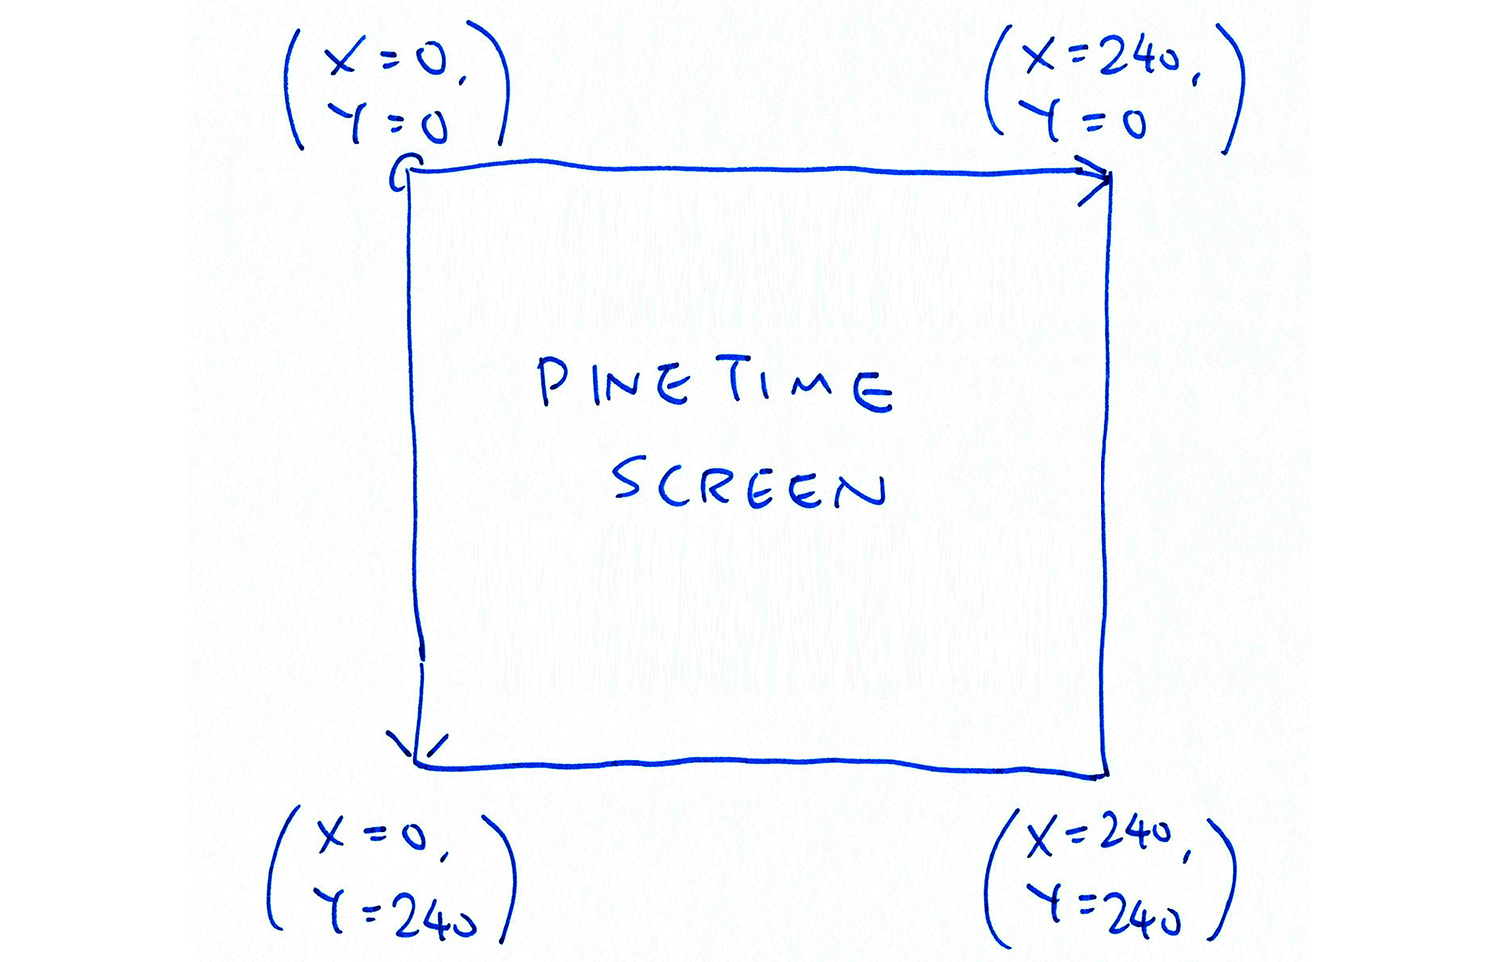 (X=0,
Y=0)
(X=240,
Y=0)
PINETIME
SCREEN
(X=0,
Y=240)
(X=240,
Y=240)